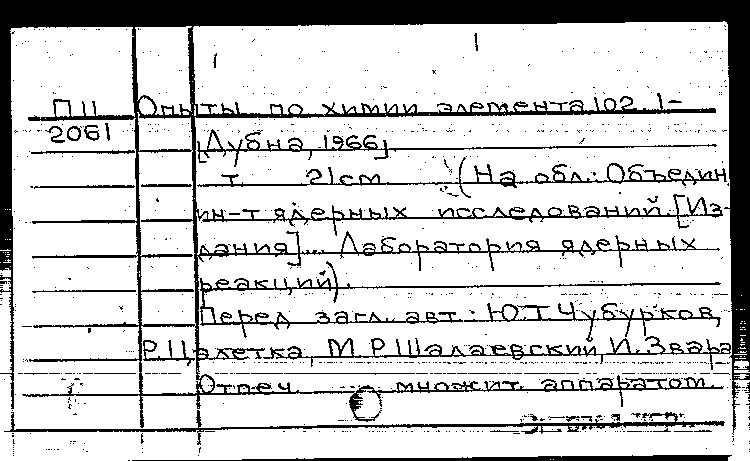 П11 Опыты по химии элемента 102. 1-
2061
[Дубна, 1966]
т. 21см (На обл.: Объедин.
ин-т ядерных исследований. [Из-
дания]... Лаборатория ядерных
реакций).
Перед загл. авт.: Ю.Т. Чубурков,
Р. Цалетка, М.Р. Шалаевский, И. Звара
Отпеч. множит. аппаратом.